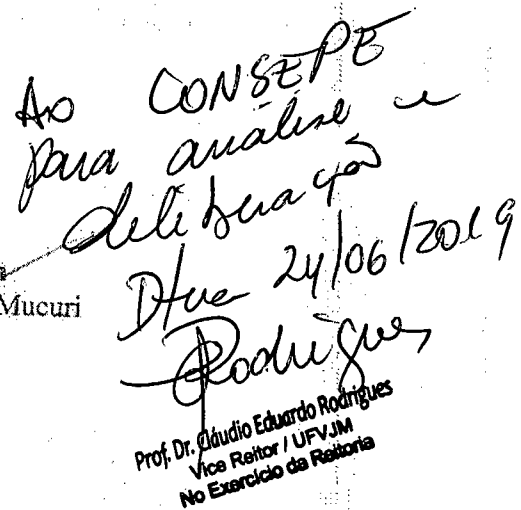 Ao CONSEPE
para análise e
deliberação
Dtna 24/06/2019
Mucuri
Rodrigues
Prof. Dr. Cláudio Eduardo Rodrigues
Vice Reitor / UFVJM
No Exercício da Reitoria